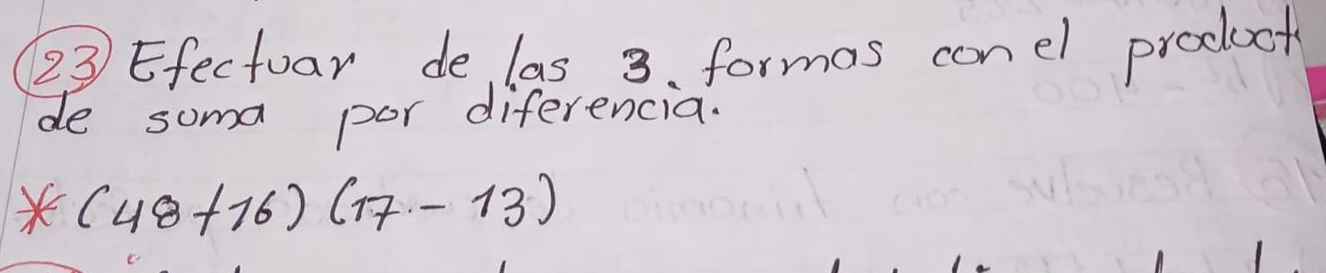 23 Efectuar de las 3. formas con el product
de suma por diferencia.
* (48+16) (17-13)